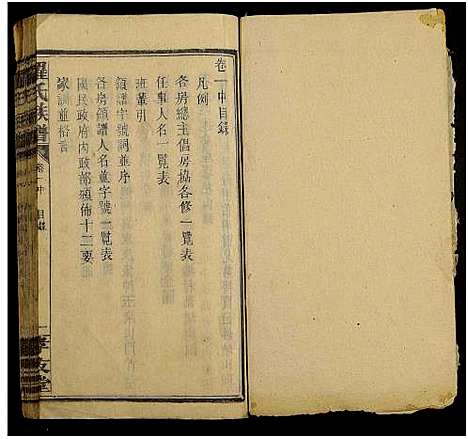 卷一中目錄
凡例
各房總主倡房協各修一覽表
任事人名一覽表
班輩引
領譜字號詞並序
各房領譜人名並字號一覽表
國民政府內政部頒佈十二要
家訓並格言
羅氏族譜
目錄